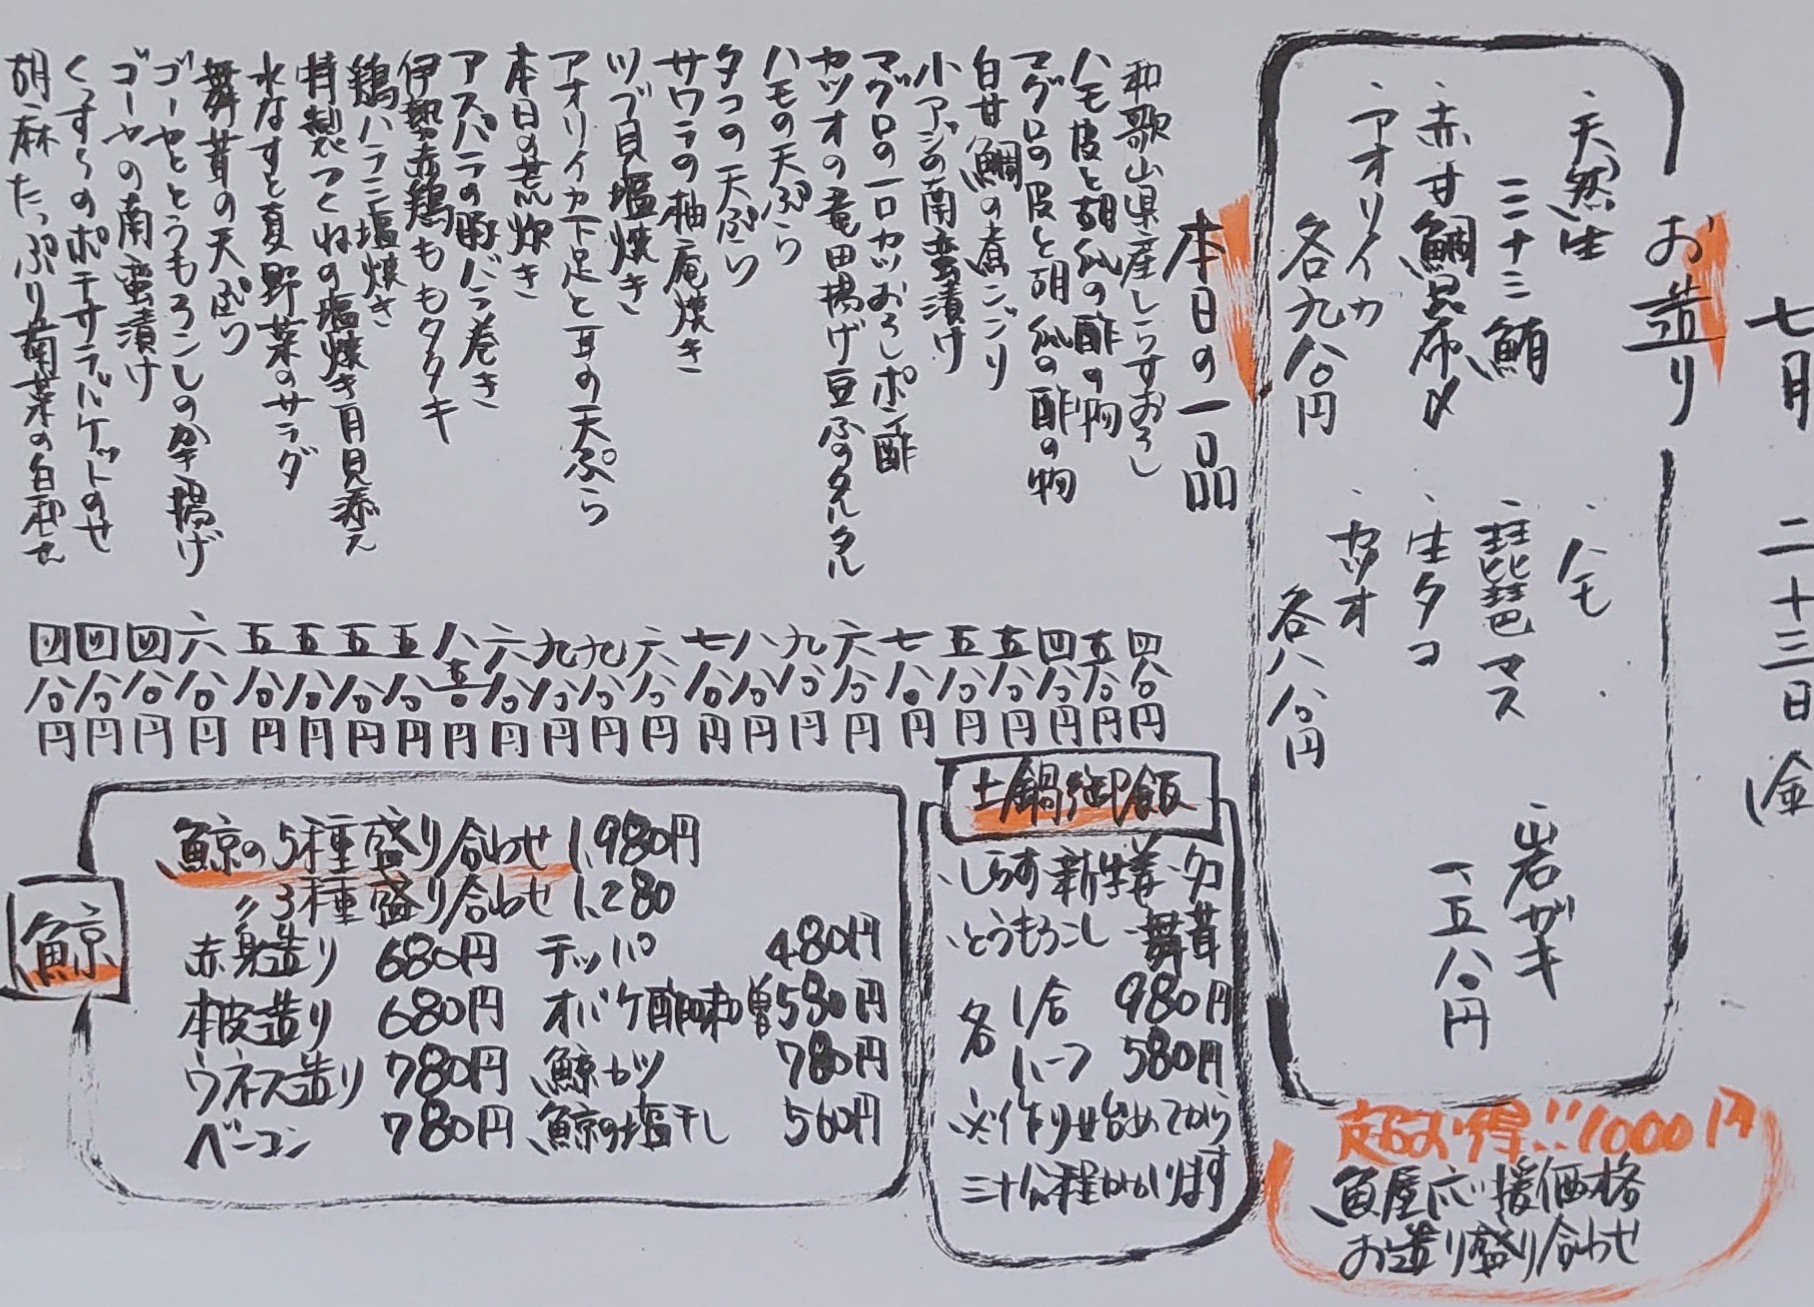 七月二十三日(金
お造り
・天然生
ミナミ鮪
・赤甘鯛昆布〆
・アオリイカ
各九八〇円
・ハモ
・琵琶マス
・生タコ
・カツオ
各八八〇円
岩ガキ
一、五八〇円
超お得!!1000円
魚屋応援価格
お造り盛り合わせ
本日の一品
和歌山県産しらすおろし 四八〇円
ハモ皮と胡瓜の酢の物 五八〇円
マグロの皮と胡瓜の酢の物 四八〇円
白甘鯛の煮こごり 五八〇円
小アジの南蛮漬け 五八〇円
マグロの一口カツおろしポン酢 七八〇円
カツオの竜田揚げ豆ふのタルタル 六八〇円
ハモの天ぷら 九八〇円
タコの天ぷら 八八〇円
サワラの柚庵焼き 七八〇円
ツブ貝塩焼き 六八〇円
アオリイカ下足と耳の天ぷら 九八〇円
本日の荒炊き 九八〇円
アスパラの豚バラ巻き 六八〇円
伊勢赤鶏ももタタキ 八五〇円
鶏ハラミ塩焼き 五八〇円
特製つくねの塩焼き月見添え 五八〇円
水なすと夏野菜のサラダ 五八〇円
舞茸の天ぷら 五八〇円
ゴーヤととうもろこしのかき揚げ 六八〇円
ゴーヤの南蛮漬け 四八〇円
のポテサラバケットのせ 四八〇円
胡麻たっぷり菊菜の白和え 四八〇円
土鍋御飯
・しらす・新生姜・タコ
・とうもろこし・舞茸
各 1合 980円
ハーフ 580円
※作り始めてから
三十分程かかります
鯨
鯨の5種盛り合わせ 1,980円
〃3種盛り合わせ 1,280
赤身造り 680円 テッパ 480円
本皮造り 680円 オバケ酢味噌 580円
ウネス造り 780円 鯨カツ 780円
ベーコン 780円 鯨の塩干し 560円